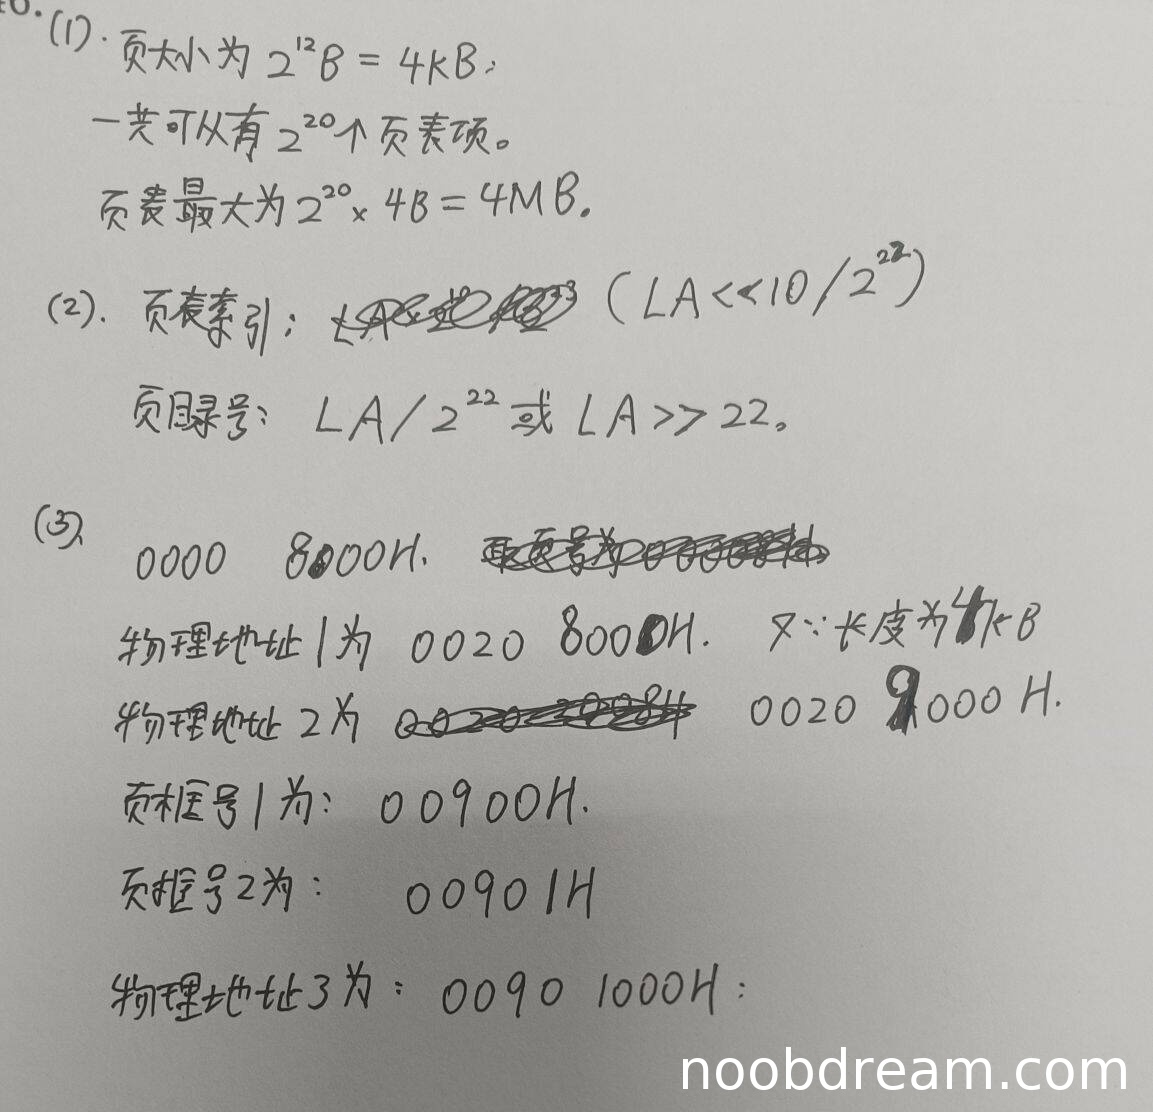 (1). 页大小为 2¹²B = 4KB.
一共可以有 2²⁰个页表项。
页表最大为 2²⁰ × 4B = 4MB.
(2). 页表索引: (LA<<10/2²²)
页目录号: LA/2²² 或 LA>>22。
(3)、
0000 8000H.
物理地址1为 0020 8000H. 又∵长度为4KB
物理地址2为 0020 9000H.
页框号1为: 00900H.
页框号2为: 00901H
物理地址3为: 0090 1000H:
noobdream.com